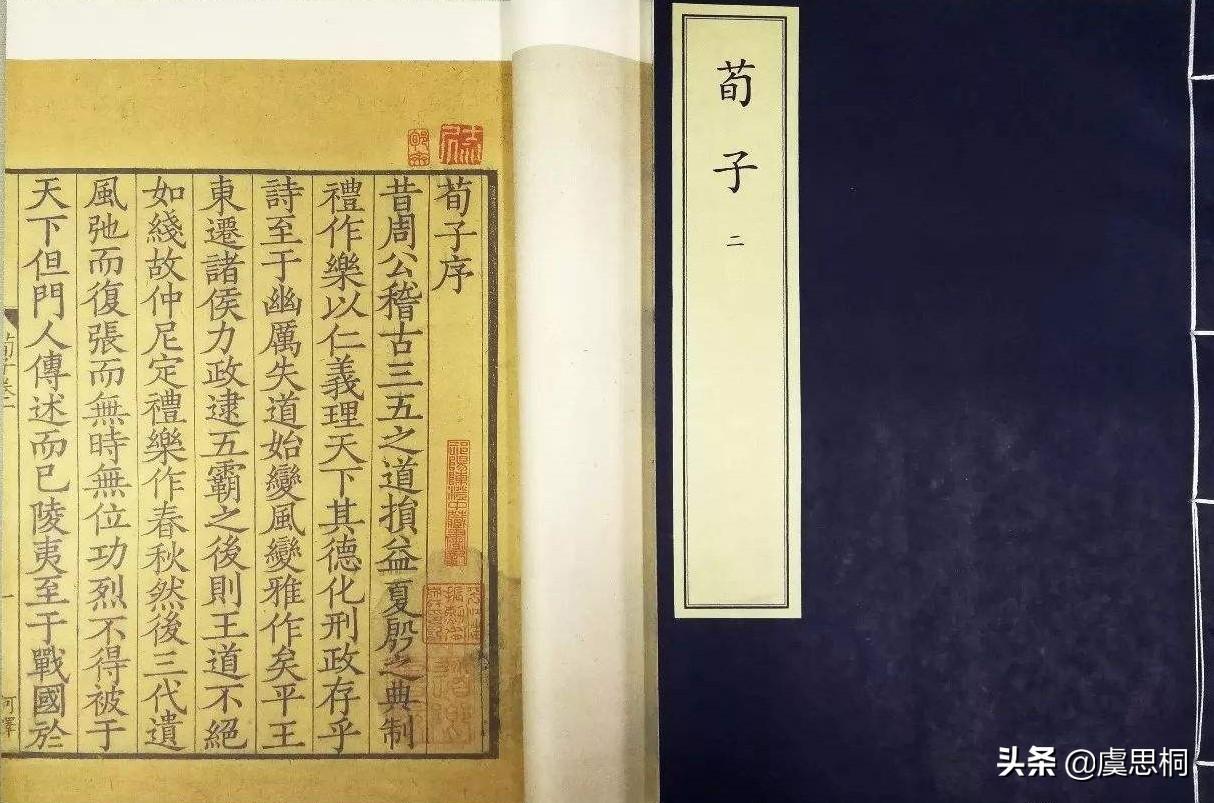 荀子序
昔周公稽古三五之道損益夏殷之典制
禮作樂以仁義理天下其德化刑政存乎
詩至于幽厲失道始變風變雅作矣平王
東遷諸侯力政逮五霸之後則王道不絕
如綫故仲尼定禮樂作春秋然後三代遺
風弛而復張而無時無位功烈不得被于
天下但門人傳述而已陵夷至于戰國於
荀子
二
头条 @虞思桐